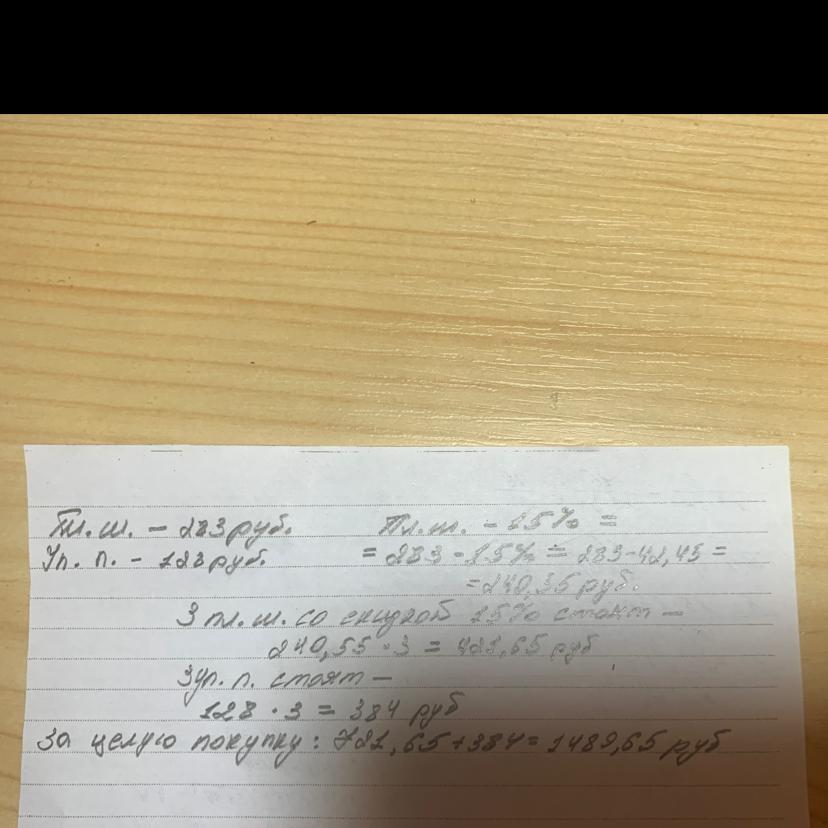 Пл.ш. – 283 руб. Пл.ш. – 15% =
Уп. п. – 128 руб. = 283 – 15% = 283–42,45 =
= 240,55 руб.
3 пл.ш. со скидкой 15% стоят –
240,55 · 3 = 721,65 руб
3 уп. п. стоят –
128 · 3 = 384 руб
За целую покупку: 721,65 + 384 = 1489,65 руб